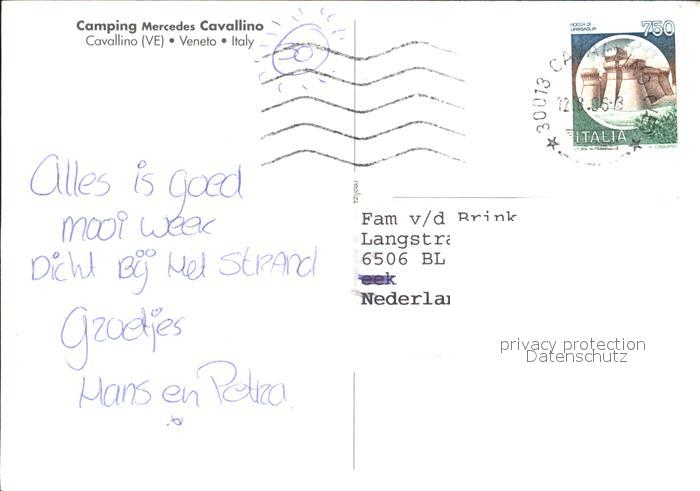 Camping Mercedes Cavallino
Cavallino (VE) • Veneto • Italy
30
ROCCA DI URBISAGLIA
750
30013 CAVALLINO
12.8.96-8
ITALIA
Alles is goed
mooi weer
Dicht Bij Het STRAND
Groetjes
Hans en Petra
Fam v/d Brink
Langstra
6506 BL
eek
Nederlan
privacy protection
Datenschutz